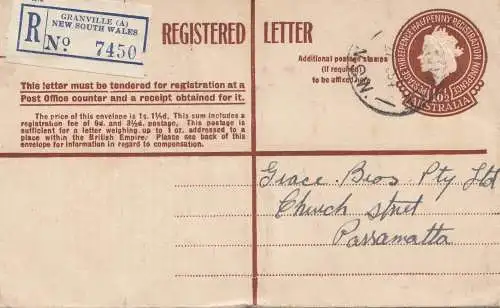 GRANVILLE (A)
NEW SOUTH WALES
R No 7450
REGISTERED LETTER
Additional postage stamps
(if required)
to be affixed
This letter must be tendered for registration at a
Post Office counter and a receipt obtained for it.
The price of this envelope is 1s. 1½d. This sum includes a
registration fee of 9d. and 3½d. postage. This postage is
sufficient for a letter weighing up to 1 oz. addressed to a
place within the British Empire. Please see back of this
envelope for information in regard to compensation.
POSTAGE THREEPENCE HALFPENNY REGISTRATION NINEPENCE
AUSTRALIA
N.S.W
Grace Bros Pty Ltd
Church street
Parramatta